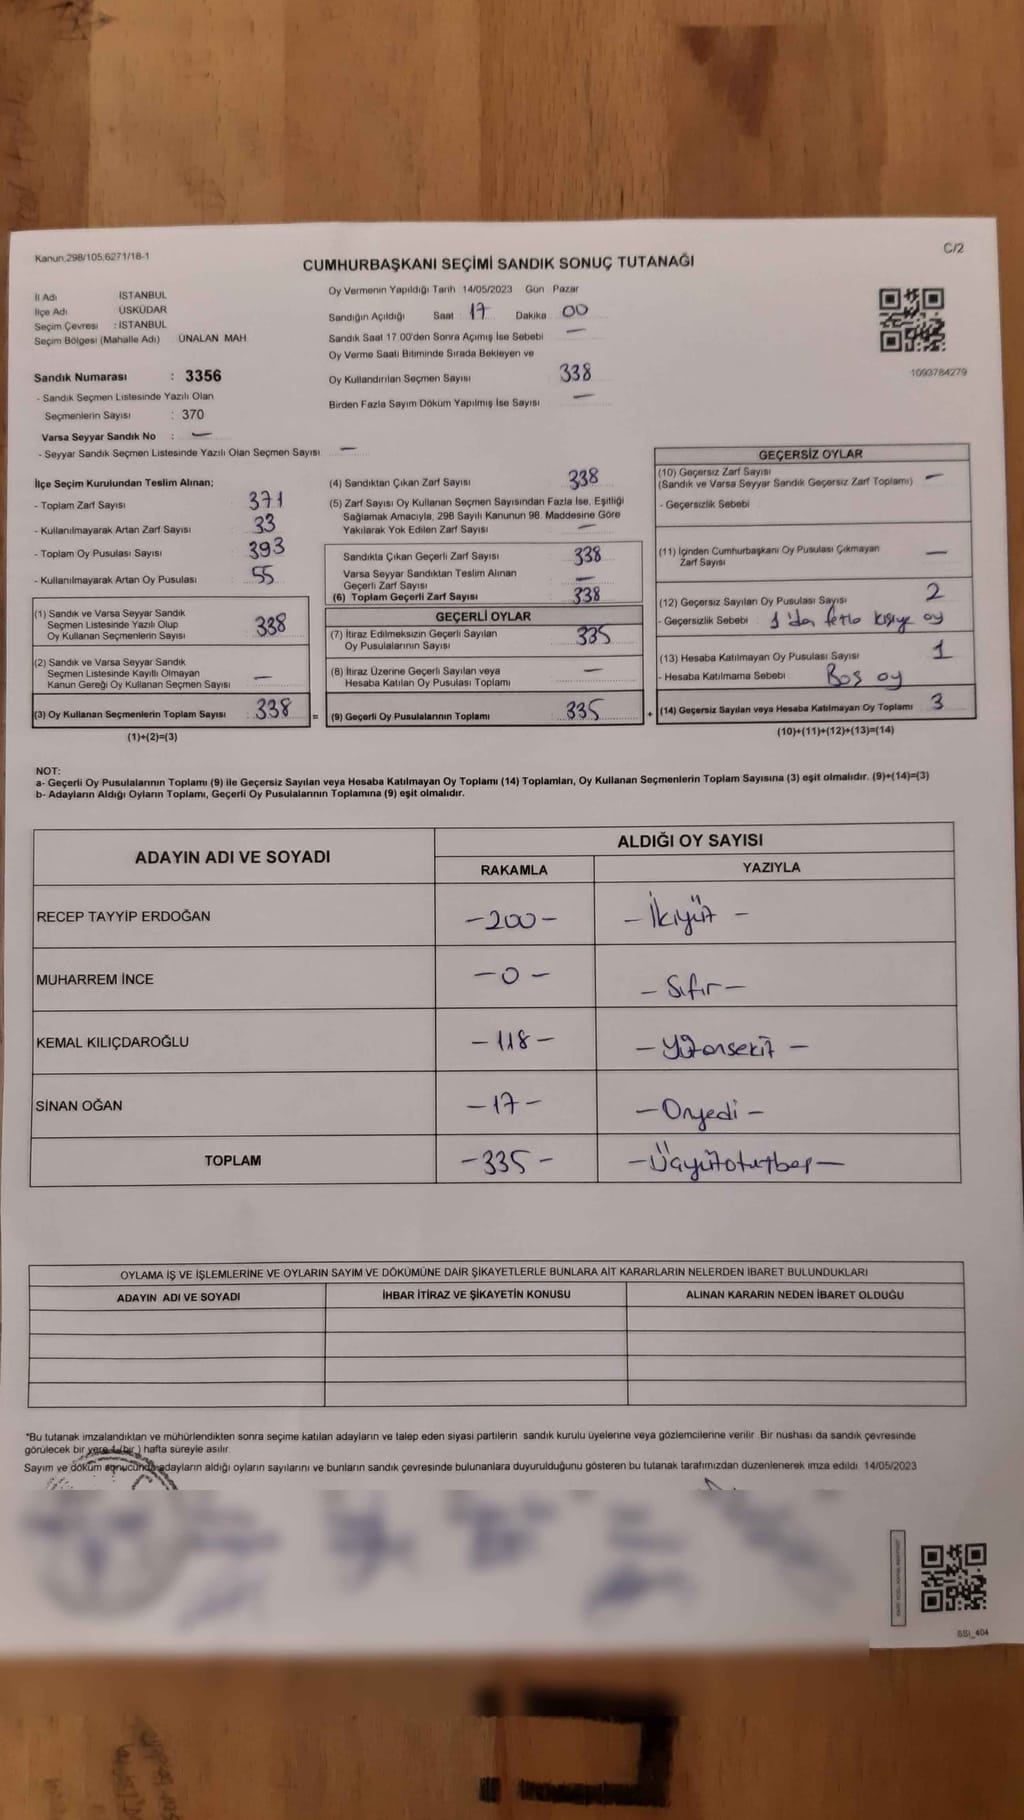 Kanun,298/105,6271/18-1
C/2
CUMHURBAŞKANI SEÇİMİ SANDIK SONUÇ TUTANAĞI
İl Adı İSTANBUL
İlçe Adı ÜSKÜDAR
Seçim Çevresi : İSTANBUL
Seçim Bölgesi (Mahalle Adı) ÜNALAN MAH.
Sandık Numarası : 3356
- Sandık Seçmen Listesinde Yazılı Olan
Seçmenlerin Sayısı : 370
Varsa Seyyar Sandık No : —
- Seyyar Sandık Seçmen Listesinde Yazılı Olan Seçmen Sayısı —
Oy Vermenin Yapıldığı Tarih 14/05/2023 Gün Pazar
Sandığın Açıldığı Saat 17 Dakika 00
Sandık Saat 17.00'den Sonra Açımış İse Sebebi —
Oy Verme Saati Bitiminde Sırada Bekleyen ve
Oy Kullandırılan Seçmen Sayısı 338
Birden Fazla Sayım Döküm Yapılmış İse Sayısı —
1093784279
İlçe Seçim Kurulundan Teslim Alınan;
- Toplam Zarf Sayısı 371
- Kullanılmayarak Artan Zarf Sayısı 33
- Toplam Oy Pusulası Sayısı 393
- Kullanılmayarak Artan Oy Pusulası 55
(1) Sandık ve Varsa Seyyar Sandık
Seçmen Listesinde Yazılı Olup
Oy Kullanan Seçmenlerin Sayısı 338
(2) Sandık ve Varsa Seyyar Sandık
Seçmen Listesinde Kayıtlı Olmayan
Kanun Gereği Oy Kullanan Seçmen Sayısı —
(3) Oy Kullanan Seçmenlerin Toplam Sayısı 338 =
(1)+(2)=(3)
(4) Sandıktan Çıkan Zarf Sayısı 338
(5) Zarf Sayısı Oy Kullanan Seçmen Sayısından Fazla İse, Eşitliği
Sağlamak Amacıyla, 298 Sayılı Kanunun 98. Maddesine Göre
Yakılarak Yok Edilen Zarf Sayısı —
Sandıkta Çıkan Geçerli Zarf Sayısı 338
Varsa Seyyar Sandıktan Teslim Alınan
Geçerli Zarf Sayısı —
(6) Toplam Geçerli Zarf Sayısı 338
GEÇERLİ OYLAR
(7) İtiraz Edilmeksizin Geçerli Sayılan
Oy Pusulalarının Sayısı 335
(8) İtiraz Üzerine Geçerli Sayılan veya
Hesaba Katılan Oy Pusulası Toplamı —
(9) Geçerli Oy Pusulalarının Toplamı 335 +
GEÇERSİZ OYLAR
(10) Geçersiz Zarf Sayısı
(Sandık ve Varsa Seyyar Sandık Geçersiz Zarf Toplamı) —
- Geçersizlik Sebebi
(11) İçinden Cumhurbaşkanı Oy Pusulası Çıkmayan
Zarf Sayısı —
(12) Geçersiz Sayılan Oy Pusulası Sayısı 2
- Geçersizlik Sebebi 1'den fazla kişiye oy
(13) Hesaba Katılmayan Oy Pusulası Sayısı 1
- Hesaba Katılmama Sebebi Boş oy
(14) Geçersiz Sayılan veya Hesaba Katılmayan Oy Toplamı 3
(10)+(11)+(12)+(13)=(14)
NOT:
a- Geçerli Oy Pusulalarının Toplamı (9) ile Geçersiz Sayılan veya Hesaba Katılmayan Oy Toplamı (14) Toplamları, Oy Kullanan Seçmenlerin Toplam Sayısına (3) eşit olmalıdır. (9)+(14)=(3)
b- Adayların Aldığı Oyların Toplamı, Geçerli Oy Pusulalarının Toplamına (9) eşit olmalıdır.
ADAYIN ADI VE SOYADI ALDIĞI OY SAYISI
RAKAMLA YAZIYLA
RECEP TAYYİP ERDOĞAN -200- -İkiyüz-
MUHARREM İNCE -0- -Sıfır-
KEMAL KILIÇDAROĞLU -118- -Yüzonsekiz-
SİNAN OĞAN -17- -Onyedi-
TOPLAM -335- -Üçyüzotuzbeş-
OYLAMA İŞ VE İŞLEMLERİNE VE OYLARIN SAYIM VE DÖKÜMÜNE DAİR ŞİKAYETLERLE BUNLARA AİT KARARLARIN NELERDEN İBARET BULUNDUKLARI
ADAYIN ADI VE SOYADI İHBAR İTİRAZ VE ŞİKAYETİN KONUSU ALINAN KARARIN NEDEN İBARET OLDUĞU
*Bu tutanak imzalandıktan ve mühürlendikten sonra seçime katılan adayların ve talep eden siyasi partilerin sandık kurulu üyelerine veya gözlemcilerine verilir. Bir nüshası da sandık çevresinde
görülecek bir yere 1 (bir ) hafta süreyle asılır.
Sayım ve döküm sonucunda adayların aldığı oyların sayılarını ve bunların sandık çevresinde bulunanlara duyurulduğunu gösteren bu tutanak tarafımızdan düzenlenerek imza edildi. 14/05/2023
SSI_404